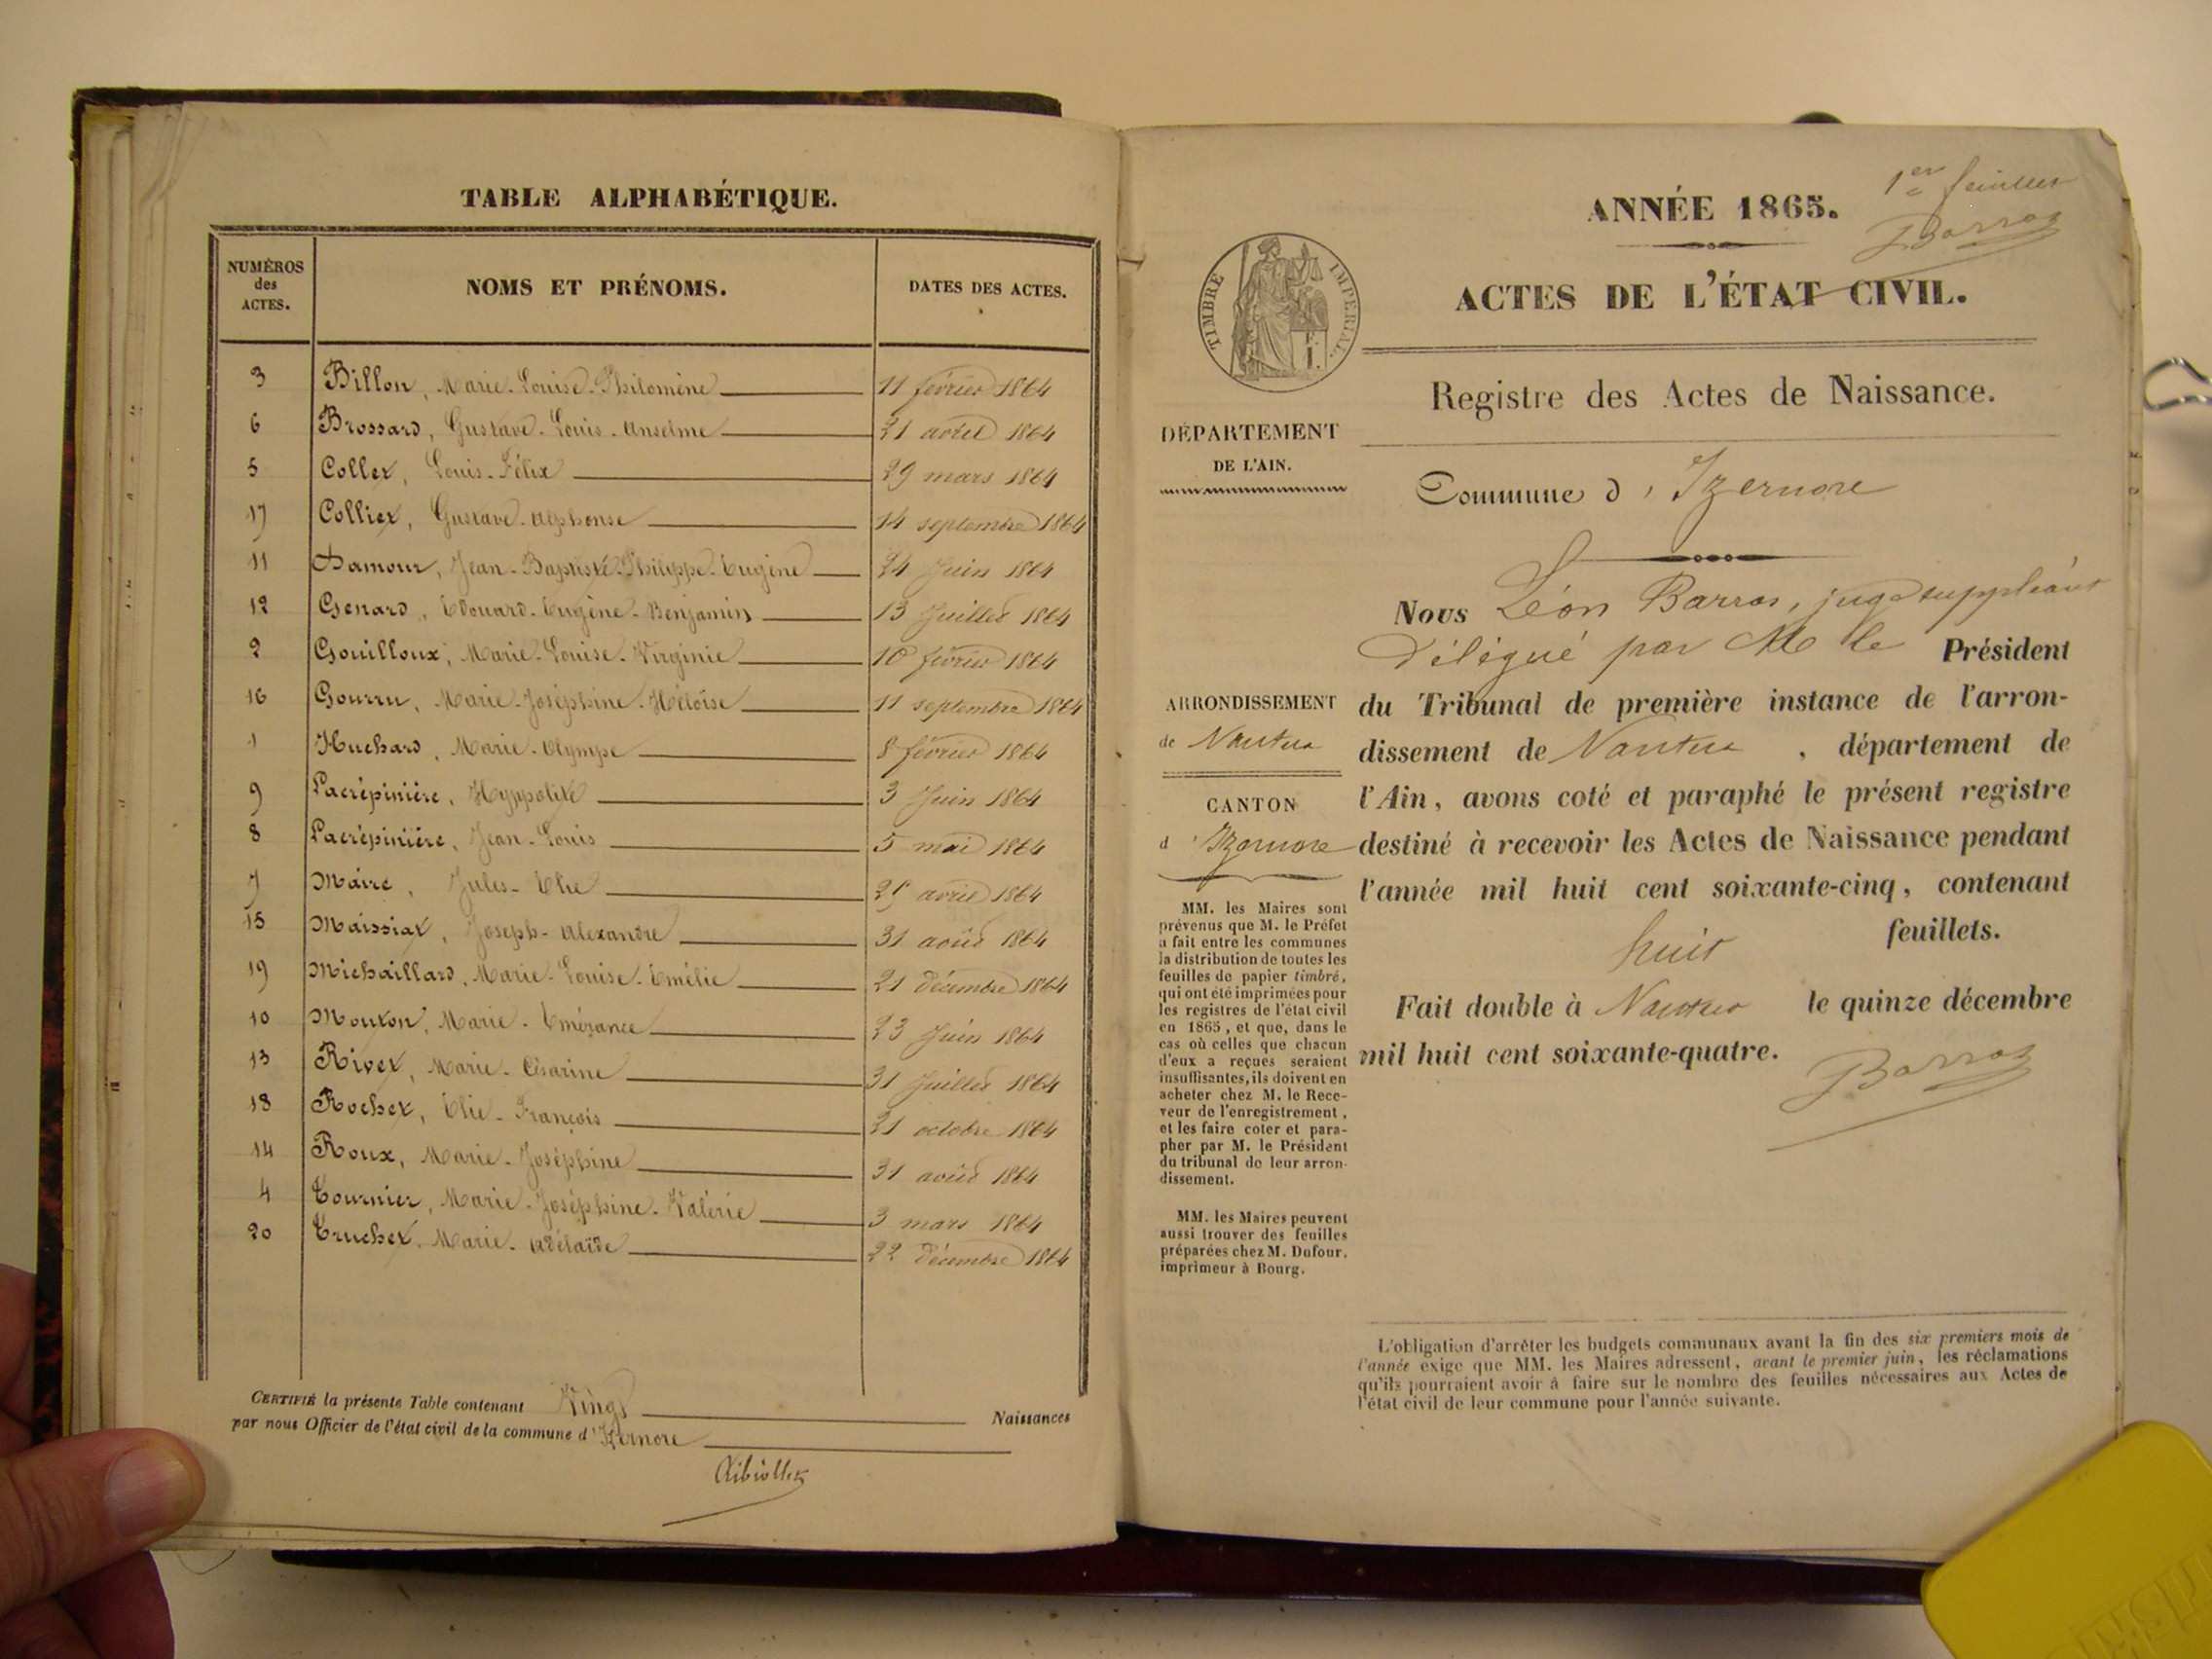 TABLE ALPHABÉTIQUE.
NUMÉROS
des
ACTES.
NOMS ET PRÉNOMS.
DATES DES ACTES.
3 Billon, Marie-Louise-Philomène 11 février 1864
6 Brossard, Gustave-Louis-Anselme 21 avril 1864
5 Collet, Louis-Félix 29 mars 1864
17 Colliex, Gustave-Alphonse 14 septembre 1864
11 Damour, Jean-Baptiste-Philippe-Eugène 24 Juin 1864
12 Genard, Edouard-Eugène-Benjamin 13 Juillet 1864
2 Gouilloux, Marie-Louise-Virginie 10 février 1864
16 Gourru, Marie-Joséphine-Héloïse 11 septembre 1864
1 Huchard, Marie-Olympe 8 février 1864
9 Lacrépinière, Hyppolite 3 Juin 1864
8 Lacrépinière, Jean-Louis 5 mai 1864
7 Maire, Jules-Elie avril 1864
15 Maissiat, Joseph-Alexandre 31 août 1864
19 Michaillard, Marie-Louise-Emélie 21 décembre 1864
10 Mouton, Marie-Emérance 23 Juin 1864
13 Rivet, Marie-Césarine 31 Juillet 1864
18 Rochet, Elie-François 21 octobre 1864
14 Roux, Marie-Joséphine 31 août 1864
4 Tournier, Marie-Joséphine-Valérie 3 mars 1864
20 Truchet, Marie-Adélaïde 22 décembre 1864
CERTIFIÉ la présente Table contenant Vingt Naissances
par nous Officier de l'état civil de la commune d'Izernore
1er feuillet
Barras
ANNÉE 1865.
ACTES DE L'ÉTAT CIVIL.
TIMBRE IMPÉRIAL.
Registre des Actes de Naissance.
DÉPARTEMENT
DE L'AIN.
Commune d'Izernore
Nous Léon Barras, juge suppléant
délégué par M le Président
du Tribunal de première instance de l'arron-
dissement de Nantua, département de
l'Ain, avons coté et paraphé le présent registre
destiné à recevoir les Actes de Naissance pendant
l'année mil huit cent soixante-cinq, contenant
huit feuillets.
Fait double à Nantua le quinze décembre
mil huit cent soixante-quatre.
Barras
ARRONDISSEMENT
de Nantua
CANTON
d'Izernore
MM. les Maires sont
prévenus que M. le Préfet
a fait entre les communes
la distribution de toutes les
feuilles de papier timbré,
qui ont été imprimées pour
les registres de l'état civil
en 1865, et que, dans le
cas où celles que chacun
d'eux a reçues seraient
insuffisantes, ils doivent en
acheter chez M. le Rece-
veur de l'enregistrement,
et les faire coter et para-
pher par M. le Président
du tribunal de leur arron-
dissement.
MM. les Maires peuvent
aussi trouver des feuilles
préparées chez M. Dufour,
imprimeur à Bourg.
L'obligation d'arrêter les budgets communaux avant la fin des six premiers mois de
l'année exige que MM. les Maires adressent, avant le premier juin, les réclamations
qu'ils pourraient avoir à faire sur le nombre des feuilles nécessaires aux Actes de
l'état civil de leur commune pour l'année suivante.